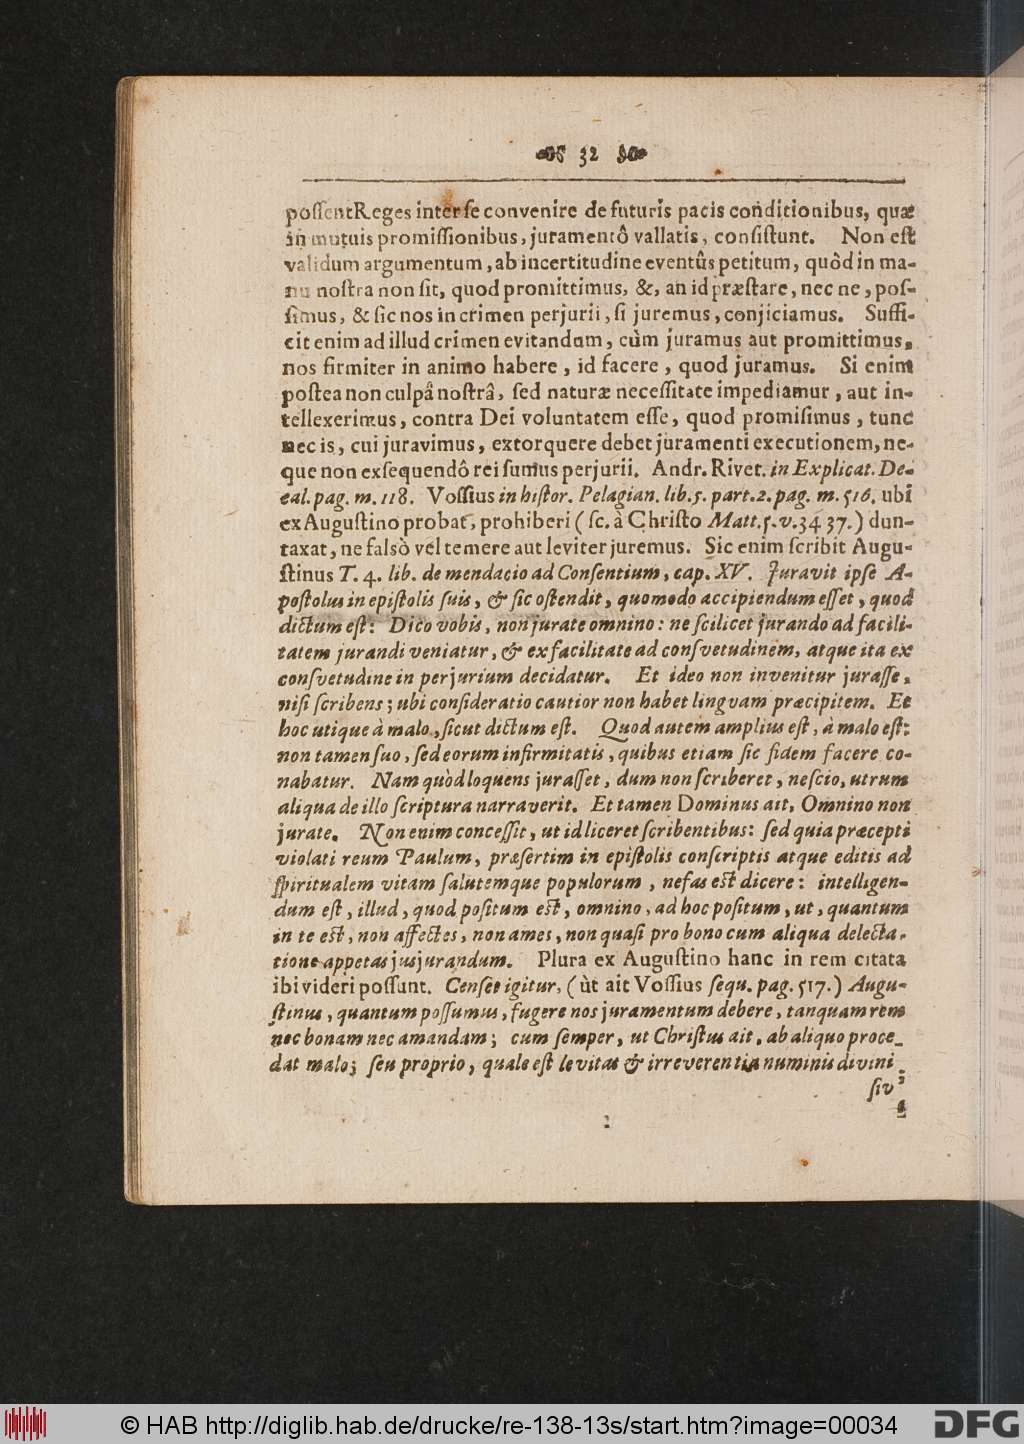 32
possentReges inter se convenire de futuris pacis conditionibus, quæ
in mutuis promissionibus, juramentô vallatis, consistunt. Non est
validum argumentum, ab incertitudine eventûs petitum, quòd in ma-
nu nostra non sit, quod promittimus, &, an id præstare, nec ne, pos-
simus, & sic nos in crimen perjurii, si juremus, conjiciamus. Suffi-
cit enim ad illud crimen evitandum, cùm juramus aut promittimus,
nos firmiter in animo habere, id facere, quod juramus. Si enim
postea non culpâ nostrâ, sed naturæ necessitate impediamur, aut in-
tellexerimus, contra Dei voluntatem esse, quod promisimus, tunc
nec is, cui juravimus, extorquere debet juramenti executionem, ne-
que non exsequendô rei sumus perjurii. Andr. Rivet. in Explicat. De-
cal. pag. m. 118. Vossius in histor. Pelagian. lib. 5. part. 2. pag. m. 516. ubi
ex Augustino probat, prohiberi (sc. à Christo Matt. 5. v. 34 37.) dun-
taxat, ne falsò vel temere aut leviter juremus. Sic enim scribit Augu-
stinus T. 4. lib. de mendacio ad Consentium, cap. XV. Juravit ipse A-
postolus in epistolis suis, & sic ostendit, quomodo accipiendum esset, quod
dictum est: Dico vobis, non jurate omnino: ne scilicet jurando ad facili-
tatem jurandi veniatur, & ex facilitate ad consvetudinem, atque ita ex
consvetudine in perjurium decidatur. Et ideo non invenitur jurasse,
nisi scribens; ubi consideratio cautior non habet lingvam præcipitem. Et
hoc utique à malo, sicut dictum est. Quod autem amplius est, à malo est:
non tamen suo, sed eorum infirmitatis, quibus etiam sic fidem facere co-
nabatur. Nam quòd loquens jurasset, dum non scriberet, nescio, utrum
aliqua de illo scriptura narraverit. Et tamen Dominus ait, Omnino non
jurate. Non enim concessit, ut id liceret scribentibus: sed quia præcepti
violati reum Paulum, præsertim in epistolis conscriptis atque editis ad
spiritualem vitam salutemque populorum, nefas est dicere: intelligen-
dum est, illud, quod positum est, omnino, ad hoc positum, ut, quantum
in te est, non affectes, non ames, non quasi pro bono cum aliqua delecta-
tione appetas jusjurandum. Plura ex Augustino hanc in rem citata
ibi videri possunt. Censet igitur, (ùt ait Vossius sequ. pag. 517.) Augu-
stinus, quantum possumus, fugere nos juramentum debere, tanquam rem
nec bonam nec amandam; cum semper, ut Christus ait, ab aliquo proce-
dat malo; seu proprio, quale est levitas & irreverentia numinis divini
siv
© HAB http://diglib.hab.de/drucke/re-138-13s/start.htm?image=00034
DFG